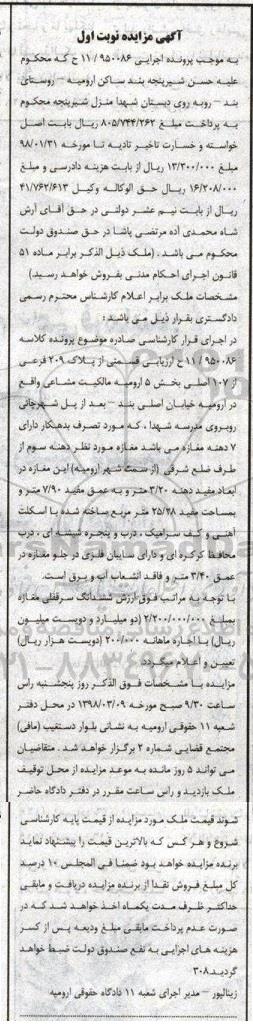 آگهی مزایده نوبت اول
به موجب پرونده اجرایی ۹۵۰۰۸۶ / ۱۱ ح که محکوم
علیه حسن شیرپنجه بند ساکن ارومیه – روستای
بند – روبه روی دبستان شهدا منزل شیرپنجه محکوم
به پرداخت مبلغ ۸۰۵/۷۴۴/۲۶۲ ریال بابت اصل
خواسته و خسارت تاخیر تادیه تا مورخه ۹۸/۰۱/۳۱
مبلغ ۱۳/۳۰۰/۰۰۰ ریال از بابت هزینه دادرسی و مبلغ
۱۶/۲۰۸/۰۰۰ ریال حق الوکاله وکیل ۴۱/۷۶۲/۶۱۳
ریال از بابت نیم عشر دولتی در حق آقای آرش
شاه محمدی آده مرتضی پاشا در حق صندوق دولت
محکوم می باشد . (ملک ذیل الذکر برابر ماده ۵۱
قانون اجرای احکام مدنی بفروش خواهد رسید.)
مشخصات ملک برابر اعلام کارشناس محترم رسمی
دادگستری بقرار ذیل می باشد :
در اجرای قرار کارشناسی صادره موضوع پرونده کلاسه
۹۵۰۰۸۶ / ۱۱ ح ارزیابی قسمتی از پلاک ۲۰۹ فرعی
از ۱۰۷ اصلی بخش ۵ ارومیه مالکیت مشاعی واقع
در ارومیه خیابان اصلی بند – بعد از پل شهرچائی
روبروی مدرسه شهدا ، که مورد تصرف بدهکار دارای
۷ دهنه مغازه می باشد مغازه مورد نظر دهنه سوم از
طرف ضلع شرقی (از سمت شهر ارومیه) این مغازه در
ابعاد مفید دهنه ۳/۲۰ متر و به عمق مفید ۷/۹۰ متر و
بمساحت مفید ۲۵/۲۸ متر مربع ساخته شده با اسکلت
آهنی و کف سرامیک ، درب و پنجره شیشه ای ، درب
محافظ کرکره ای و دارای سایبان فلزی در جلو مغازه در
عمق ۳/۴۰ متر و فاقد انشعاب آب و برق است.
با توجه به مراتب فوق ارزش ششدانگ سرقفلی مغازه
بمبلغ ۲/۲۰۰/۰۰۰/۰۰۰ (دو میلیارد و دویست میلیون
ریال) با اجاره ماهانه ۲۰۰/۰۰۰ (دویست هزار ریال)
تعیین و اعلام میگردد.
مزایده با مشخصات فوق الذکر روز پنجشنبه راس
ساعت ۹/۳۰ صبح مورخه ۱۳۹۸/۰۳/۰۹ در محل دفتر
شعبه ۱۱ حقوقی ارومیه به نشانی بلوار دستغیب (مافی)
مجتمع قضایی شماره ۲ برگزار خواهد شد . متقاضیان
می توانند ۵ روز مانده به موعد مزایده از محل توقیف
ملک بازدید و راس ساعت مقرر در دفتر دادگاه حاضر
شوند قیمت ملک مورد مزایده از قیمت پایه کارشناسی
شروع و هر کس که بالاترین قیمت را پیشنهاد نماید
برنده مزایده خواهد بود ضمنا فی المجلس ۱۰ درصد
کل مبلغ فروش نقدا از برنده مزایده دریافت و مابقی
حداکثر ظرف مدت یکماه اخذ خواهد شد که در
صورت عدم پرداخت مابقی مبلغ ودیعه پس از کسر
هزینه های اجرایی به نفع صندوق دولت ضبط خواهد
گردید.۳۰۸
زینالپور – مدیر اجرای شعبه ۱۱ دادگاه حقوقی ارومیه